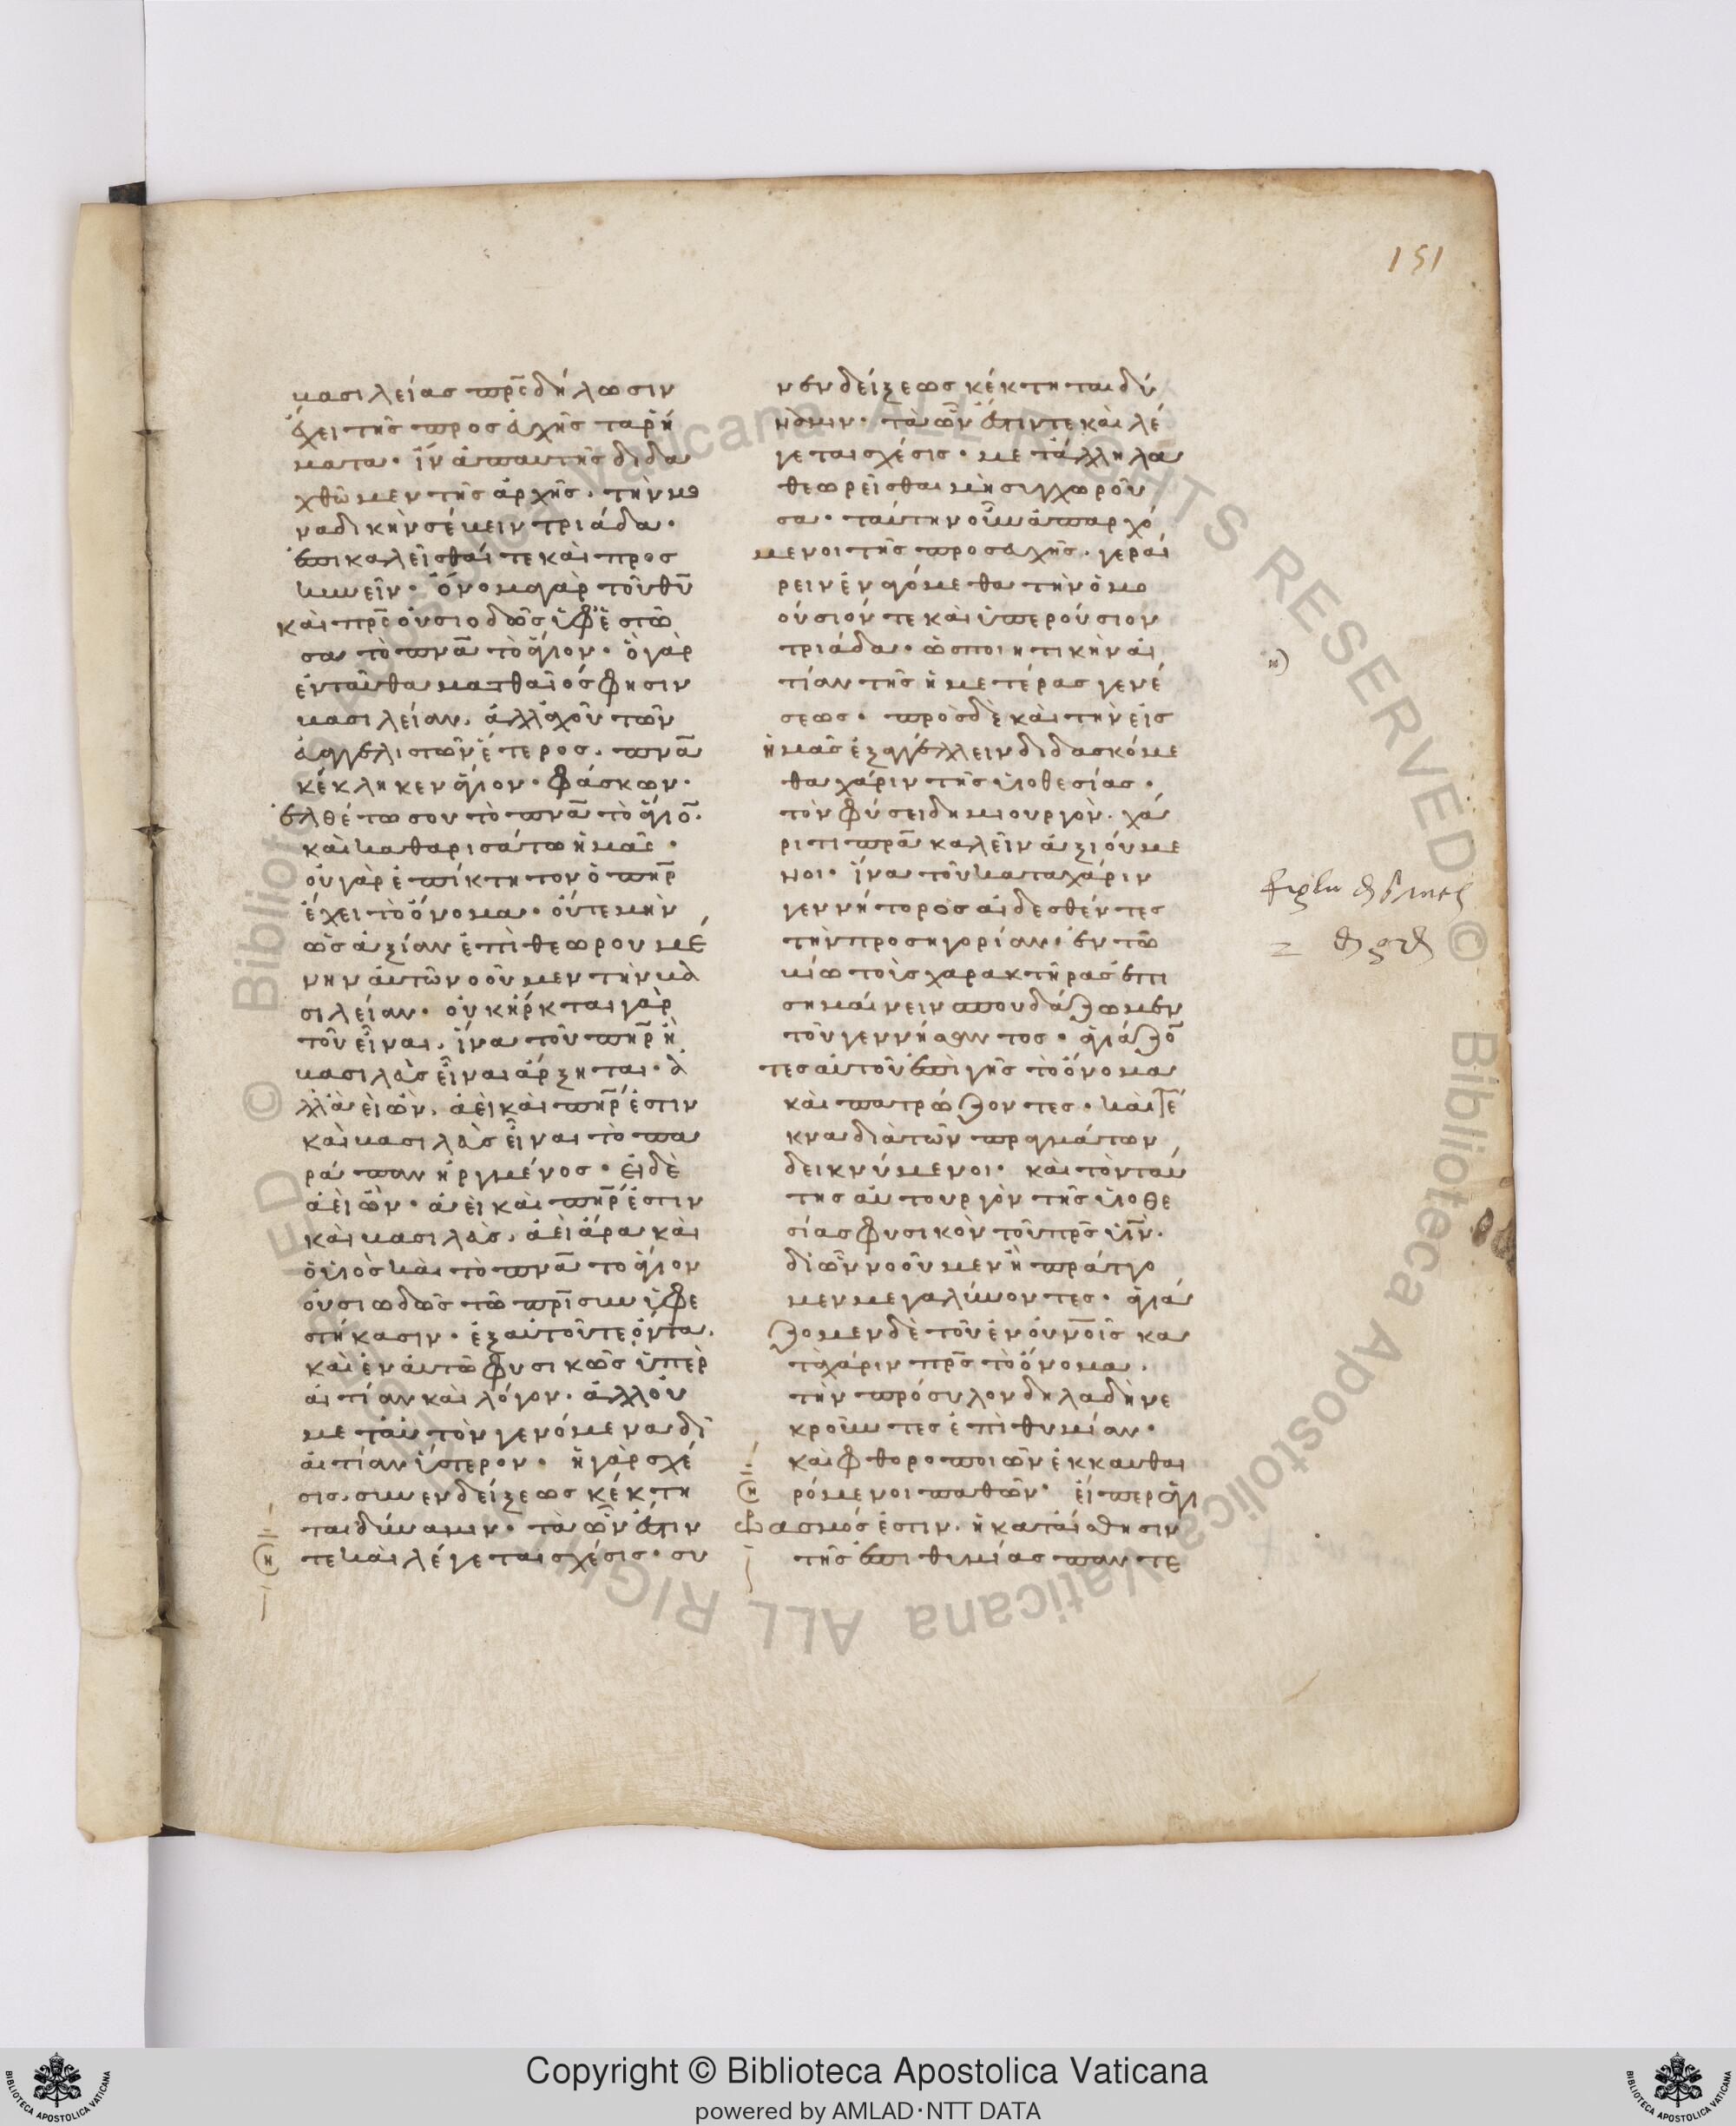 151
βασιλείας πρ̅ς ἐδήλωσιν
ἔχει τῆς προσευχῆς τὰ ῥή
ματα· ἵν' ἀπ' αὐτῆς διδα
χθῶμεν τῆς ἀρχῆς, τὴν μο
ναδικὴν σέβειν τριάδα·
ἐπικαλεῖσθαί τε καὶ προσ
κυνεῖν· ὄνομα γὰρ τοῦ θυ̅
καὶ πρ̅ς οὐσιοδῶς ὑφεστῶ
σα τὸ πνα̅ τὸ ἅγιον· ὃ γὰρ
ἐνταῦθα ματθαῖός φησιν
βασιλείαν, ἀλλαχοῦ τῶν
εὐαγγελιστῶν ἕτερος, πνα̅
κέκληκεν ἅγιον· φάσκων·
ἐλθέτω σου τὸ πνα̅ τὸ ἅγιο̅·
καὶ καθαρισάτω ἡμᾶς·
οὐ γὰρ ἐπίκτητον ὁ πη̅ρ
ἔχει τὸ ὄνομα· οὔτε μὴν
ὡς ἀξίαν ἐπιθεωρουμέ
νην αὐτῶ νοοῦμεν τὴν βα
σιλείαν· οὐκ ἦρκται γὰρ
τοῦ εἶναι, ἵνα τοῦ πη̅ρ ἢ
βασιλεὺς εἶναι ἄρξηται· ἀ
λλ' ἀεὶ ὤν, ἀεὶ καὶ πη̅ρ ἐστιν
καὶ βασιλεὺς εἶναι τὸ πα
ράπαν ἠργμένος· εἰ δὲ
ἀεὶ ὤν· ἀεὶ καὶ πη̅ρ ἐστιν
καὶ βασιλεὺς, ἀεὶ ἄρα καὶ
ὁ υἱὸς καὶ τὸ πνα̅ τὸ ἅγιον
οὐσιωδῶς τῶ πρι̅ συνυφε
στήκασιν· ἐξ αὐτοῦ τε ὄντα,
καὶ ἐν αὐτῶ φυσικῶς ὑπὲρ
αἰτίαν καὶ λόγον· ἀλλ' οὐ
μετ' αὐτὸν γενόμενα δι'
αἰτίαν ὕστερον· ἡ γὰρ σχέ
σις, συνενδείξεως κέκτη
ται δύναμιν· τὰ ὧν ἔστιν
τε καὶ λέγεται σχέσις· συ
νενδείξεως κέκτηται δύ
ναμιν· τὰ ὧν ἔστιν τε καὶ λέ
γεται σχέσις· μετ' ἄλληλα
θεωρεῖσθαι μὴ συγχωροῦ
σα· ταύτην οὖν ἀπαρχό
μενοι τῆς προσευχῆς, γεραί
ρειν ἐναγόμεθα τὴν ὁμο
ούσιόν τε καὶ ὑπερούσιον
τριάδα· ὡς ποιητικὴν αἰ
τίαν τῆς ἡμετέρας γενέ
σεως· πρὸς δὲ καὶ τὴν εἰς
ἡμᾶς ἐξαγγέλλειν διδασκόμε
θα χάριν τῆς υἱοθεσίας·
τὸν φύσει δημιουργὸν, χά
ριτι πρα̅ καλεῖν ἀξιούμε
νοι· ἵνα τοῦ κατα χάριν
γεννήτορος αἰδεσθέντες
τὴν προσηγορίαν· ἐν τῶ
βίω τοῖς χαρακτῆρας ἐπι
σημαίνειν σπουδάζωμεν
τοῦ γεννήσαντος· ἁγιάζο̅
τες αὐτοῦ ἐπι γῆς τὸ ὄνομα
καὶ πατρώζοντες· καὶ τέ
κνα διὰ τῶν πραγμάτων
δεικνύμενοι· καὶ τὸν ταύ
της αὐτουργὸν τῆς υἱοθε
σίας φυσικὸν τοῦ πρ̅ς υἱ̅ν·
δι' ὧν νοοῦμεν ἢ πράττο
μεν μεγαλύνοντες· ἁγιά
ζομεν δὲ τοῦ ἐν οὐν̅οις κα
τὰ χάριν πρ̅ς τὸ ὄνομα,
τὴν πρόσυλον δηλαδὴ νε
κροῦντες ἐπιθυμίαν·
καὶ φθοροποιῶν ἐκκαθαι
ρόμενοι παθῶν· εἴπερ ἁγι
ασμός ἐστιν, ἡ κατ' αἴσθησιν
τῆς ἐπιθυμίας παντε
Copyright © Biblioteca Apostolica Vaticana
powered by AMLAD·NTT DATA